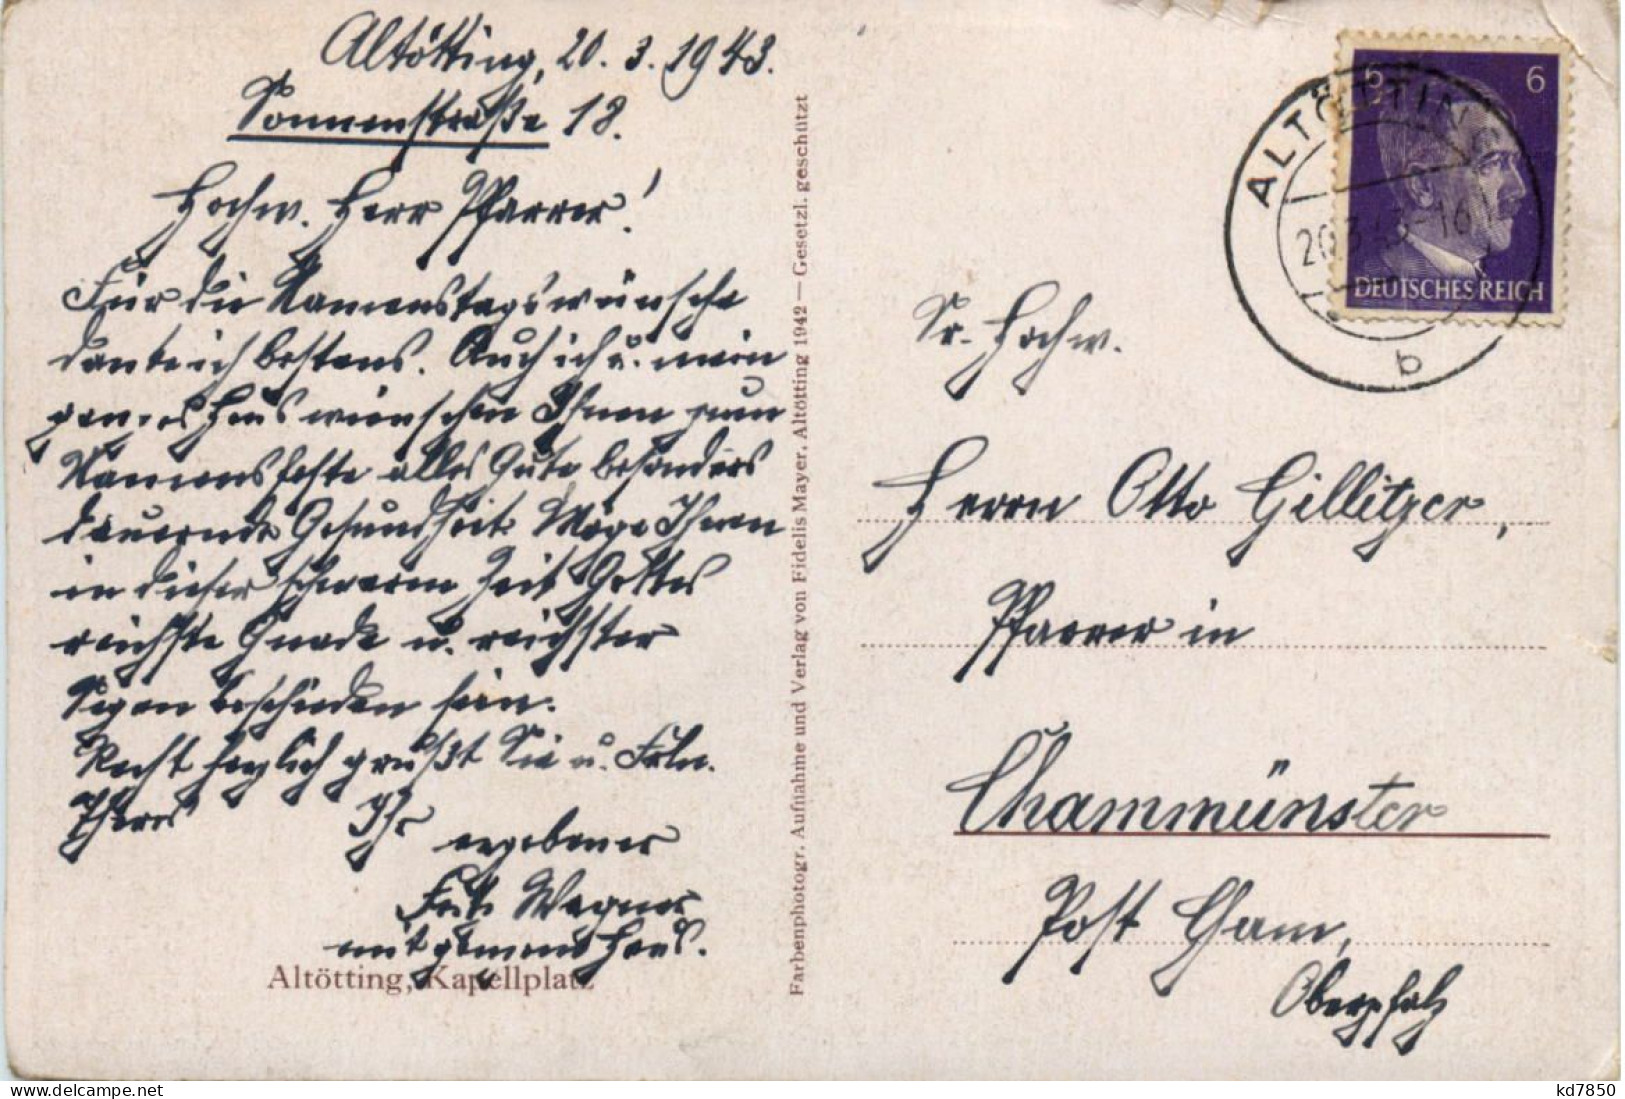 Altötting, 20. 3. 1943.
Sonnenstraße 18.
Hochw. Herr Pfarrer!
Für die Namenstagswünsche
danke ich bestens. Auch ich u. mein
ganzes Haus wünschen Ihnen zum
Namensfeste alles Gute besonders
dauernde Gesundheit. Möge Ihnen
in dieser schweren Zeit Gottes
reichste Gnade u. reichster
Segen beschieden sein.
Recht herzlich grüßt Sie u. Frln.
Theres Ihr
ergebener
Wagner
mit ganzem Haus.
Altötting, Kapellplatz
Farbenphotogr. Aufnahme und Verlag von Fidelis Mayer, Altötting 1942 — Gesetzl. geschützt
6 6
DEUTSCHES REICH
ALTÖTTING
20.3.43-16
b
Sr. Hochw.
Herrn Otto Gillitzer,
Pfarrer in
Chammünster
Post Cham,
Oberpfalz
kd7850